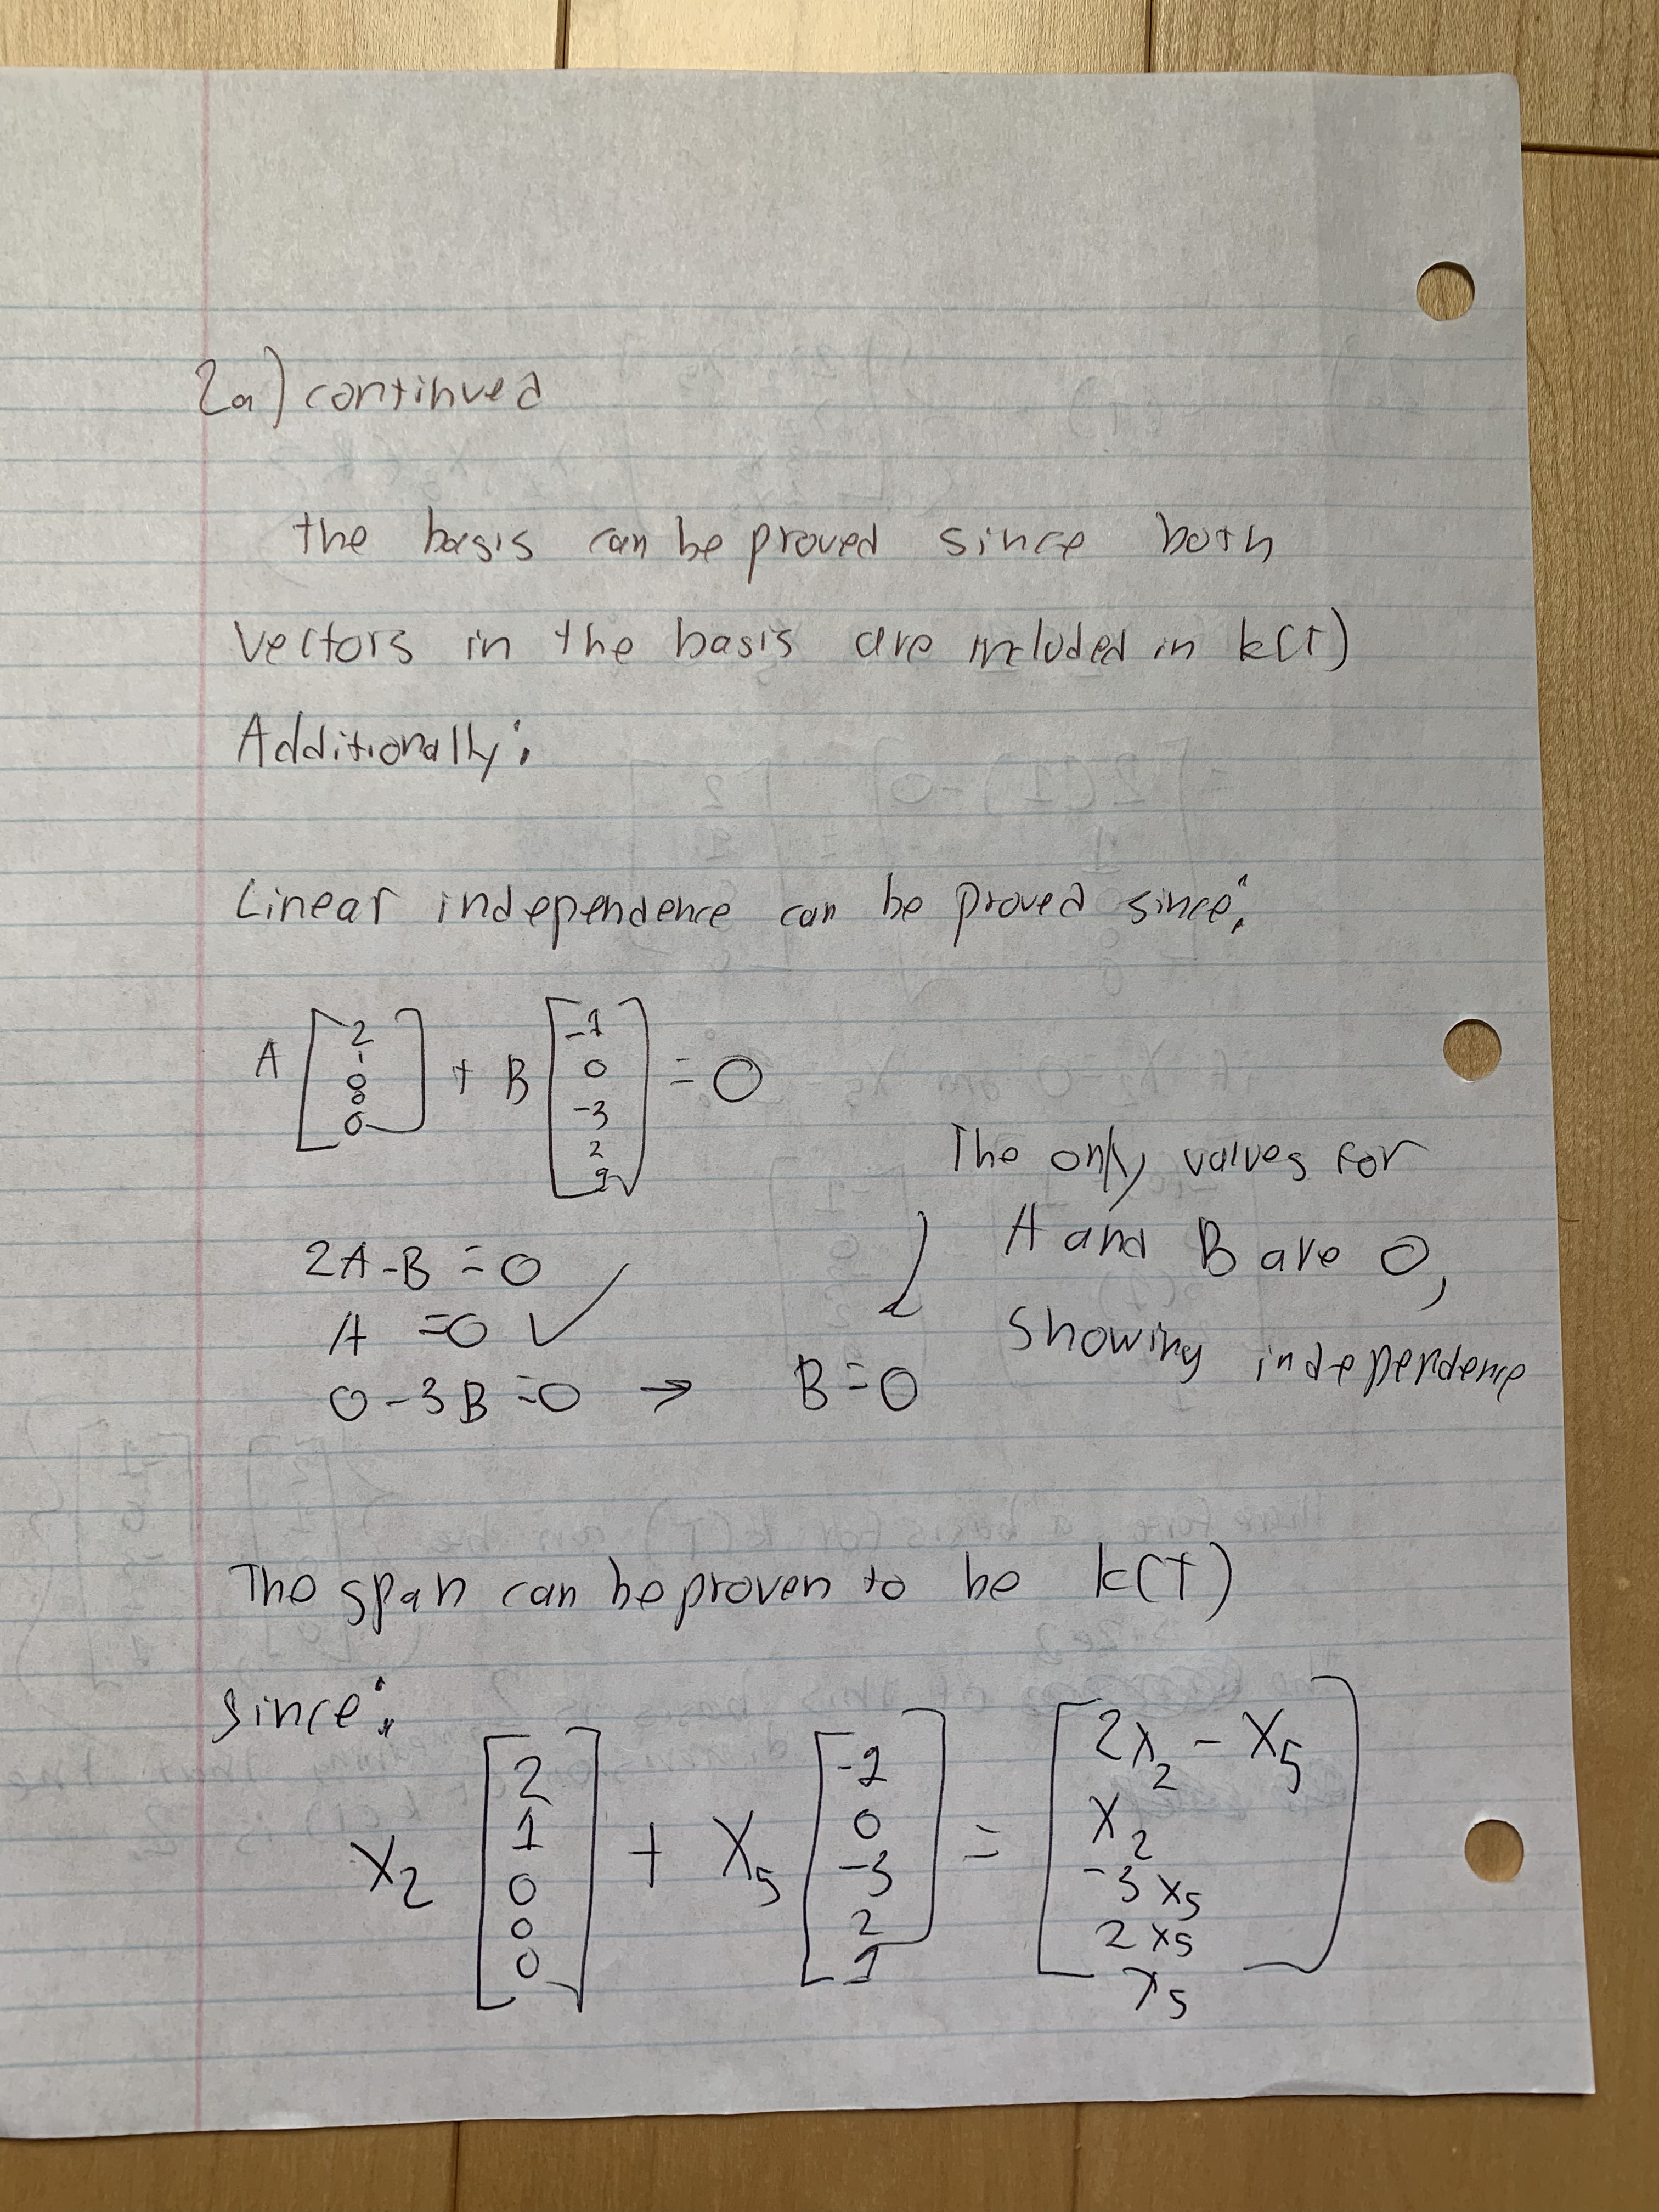 2a) continued
the basis can be proved since both
vectors in the basis are included in k(T)
Additionally:
Linear independence can be proved since:
A [2 1 0 0 0] + B [-1 0 -3 2 1] = 0
2A-B=0
A =0 ✓
0-3B=0 → B=0
The only values for
A and B are 0,
showing independence
The span can be proven to be k(T)
since:
x₂ [2 1 0 0 0] + x₅ [-1 0 -3 2 1] = [2x₂ - x₅ x₂ -3x₅ 2x₅ x₅]